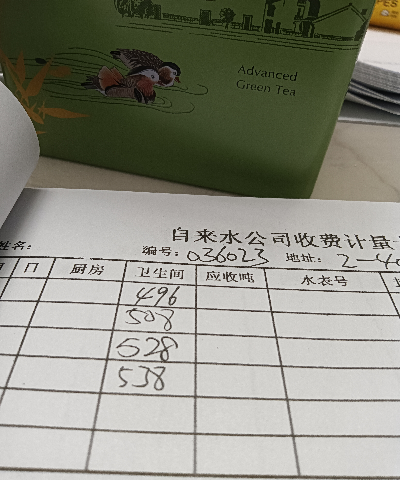 Advanced
Green Tea
自来水公司收费计量
姓名：
编号：036023 地址：2-40
月 日 厨房 卫生间 应收吨 水表号
496
508
528
538